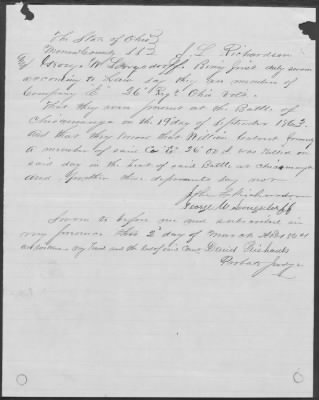 The State of Ohio
County SS J. L. Richardson
George W Longsdorff Being first duly sworn
according to Law say they are members of
Company E 26 Regt Ohio Vols.
That they were present at the Battle of
Chicamauga on the 19 day of September 1863.
And that they know that William
a member of said Co E 26 O V I was killed on
said day in the of said Battle at Chicamauga
and further these deponents say not
John L Richardson
George W Longsdorff
Sworn to before me and subscribed in
my presence this 2 day of March AD 1864
my hand and the seal of said Court Daniel Richards
Probate Judge